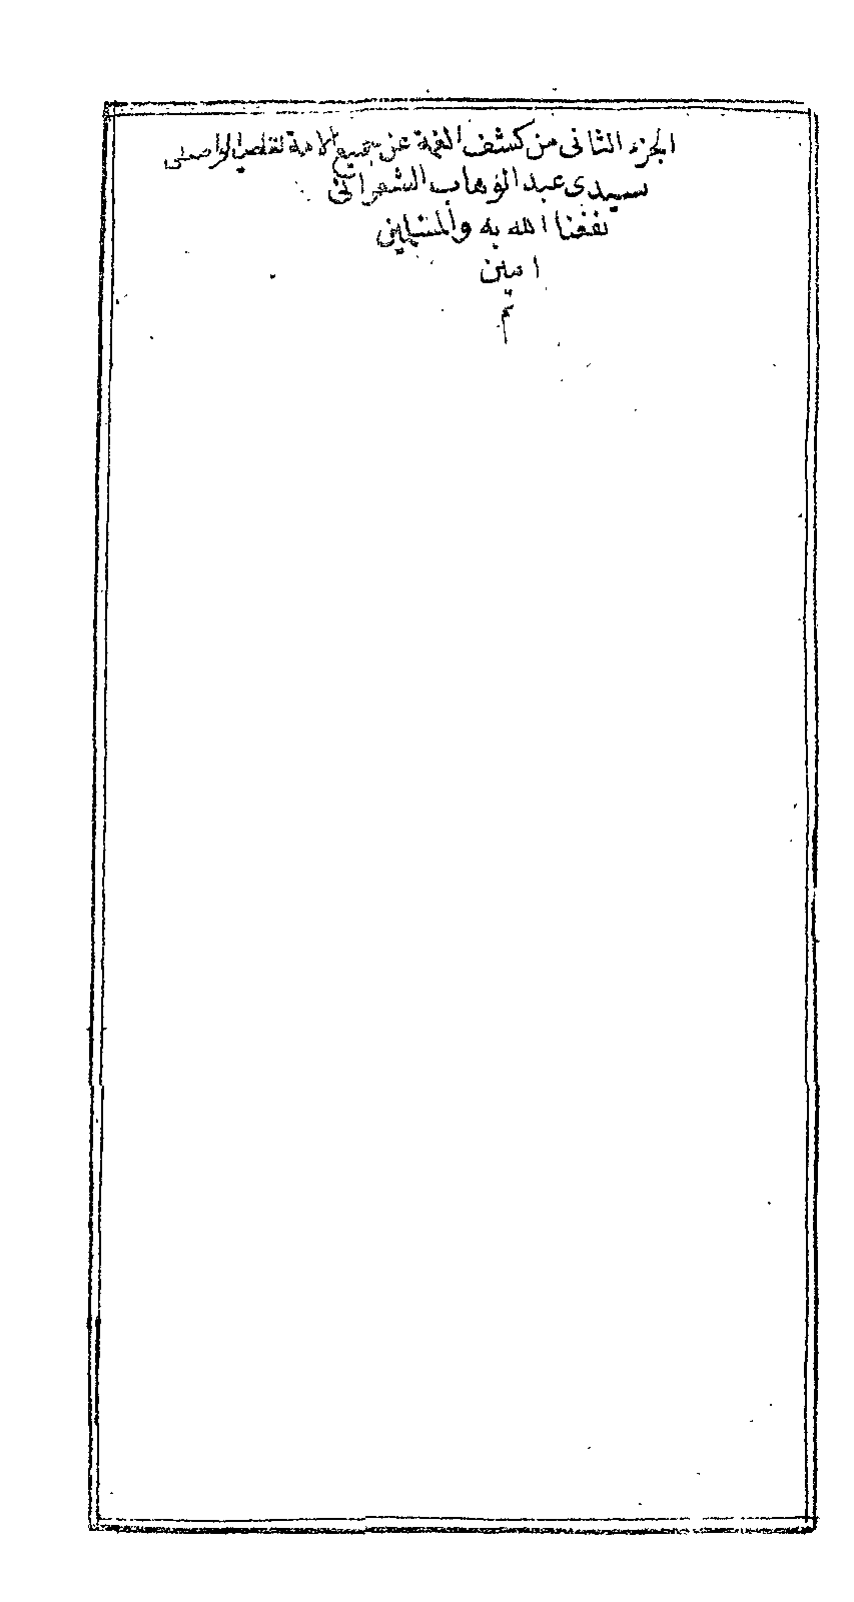 الجزء الثانى من كشف الغمة عن جميع الامة للقطب
سيدى عبد الوهاب الشعرانى
نفعنا الله به والمسلمين
امين
تم